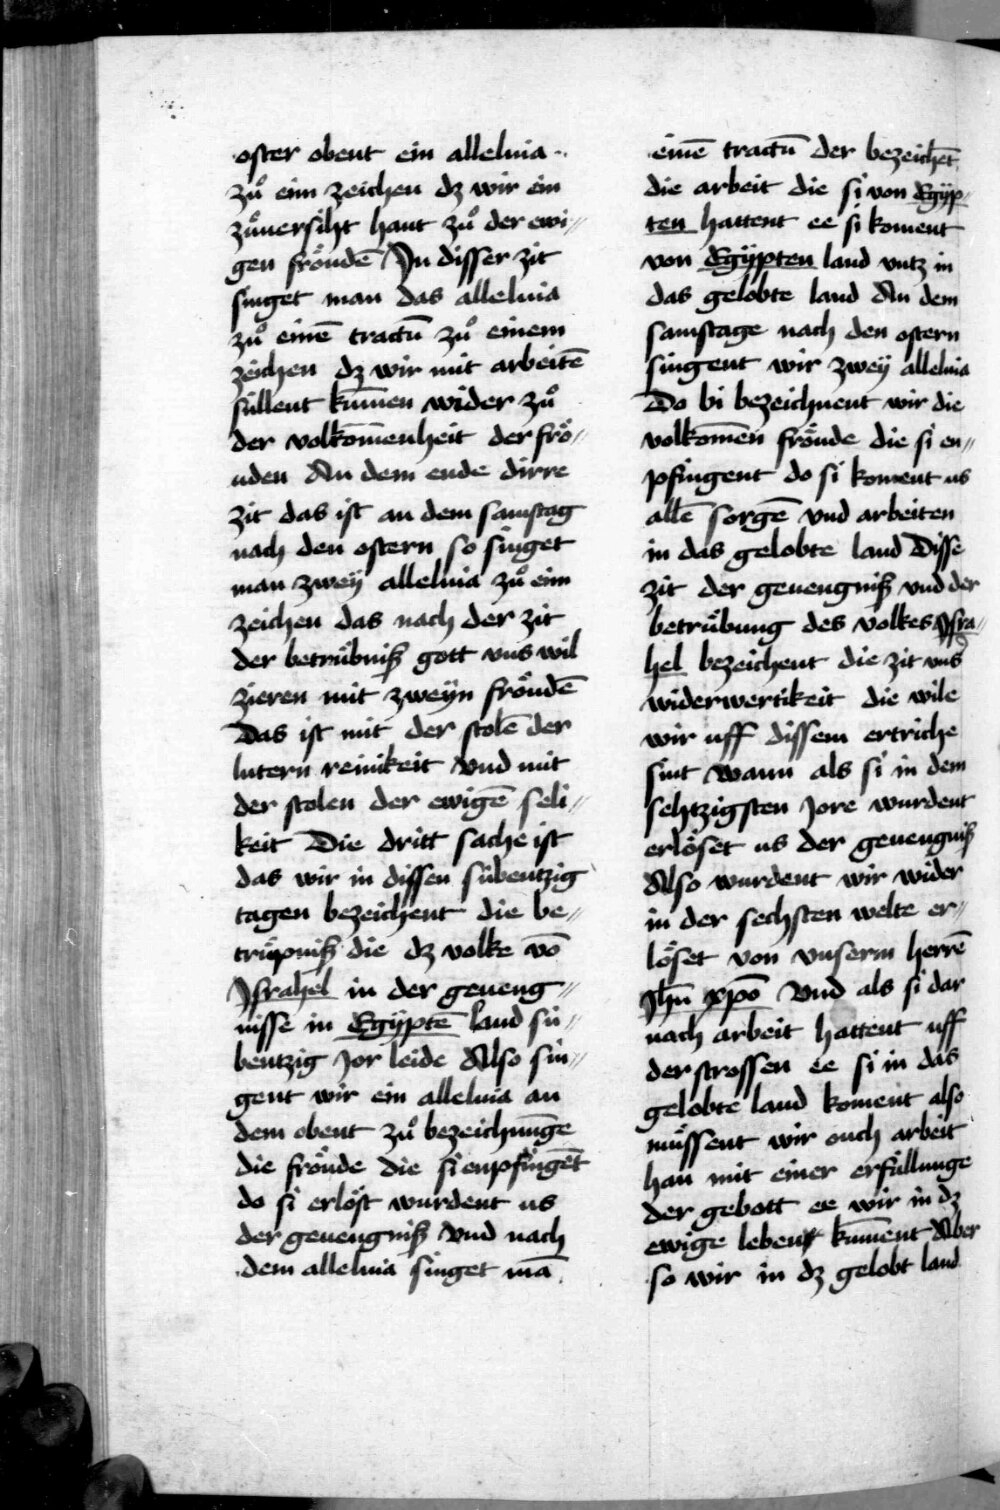 oster obent ein alleluia
zuͦ eim zeichen dz wir ein
zuͦuersiht hant zuͦ der ewi//
gen froͤudē In disser zit
singet man das alleluia
zuͦ einē tractū zuͦ einem
zeichen dz wir mit arbeitē
süllent kūmen wider zuͦ
der volkōmenheit der froͤ//
uden An dem ende dirre
zit das ist an dem samstag
nach den ostern so singet
man zweÿ alleluia zuͦ eim
zeichen das nach der zit
der betruͤbniß gott vns wil
zieren mit zweÿn froͤudē
Das ist mit der stolē der
lutern reinikeit vnd mit
der stolen der ewigē seli//
keit Die dritt sache ist
das wir in dissen sübentzig
tagen bezeichent die be//
truͤpniß die dz volke vō
Jsrahel in der geueng//
nisse in Egÿptē land sü//
bentzig Jor leide Also sin//
gent wir ein alleluia an
dem obent zuͦ bezeichnūge
die froͤude die si enpfingēt
do si erlöst wurdent us
der geuengniß vnd nach
dem alleluia singet mā
einē tractū der bezeichēt
die arbeit die si von Egÿp//
ten hattent ee si koment
von Egÿpten land vntz in
das gelobte land An dem
samstage nach den ostern
singent wir zweÿ alleluia
Do bi bezeichnent wir die
volkomēn froͤude die si en//
pfingent do si koment us
allē sorgē vnd arbeiten
in das gelobte land Disse
zit der geuengniß vnd der
betruͤbung des volkes Jsra//
hel bezeichent die zit vns
widerwertikeit die wile
wir uff dissem ertriche
sint Wann als si in dem
sehtzigsten Jore wurdent
erlöset us der geuengniß
Also wurdent wir wider
in der sechsten welte er//
löset von vnserm herrē
Jhū xpō Vnd als si dar
nach arbeit hattent uff
der strossen ee si in das
gelobte land koment also
muͤssent wir ouch arbeit
han mit einer erfüllunge
der gebott ee wir in dz
ewige leben kūment Aber
so wir in dz gelobt land